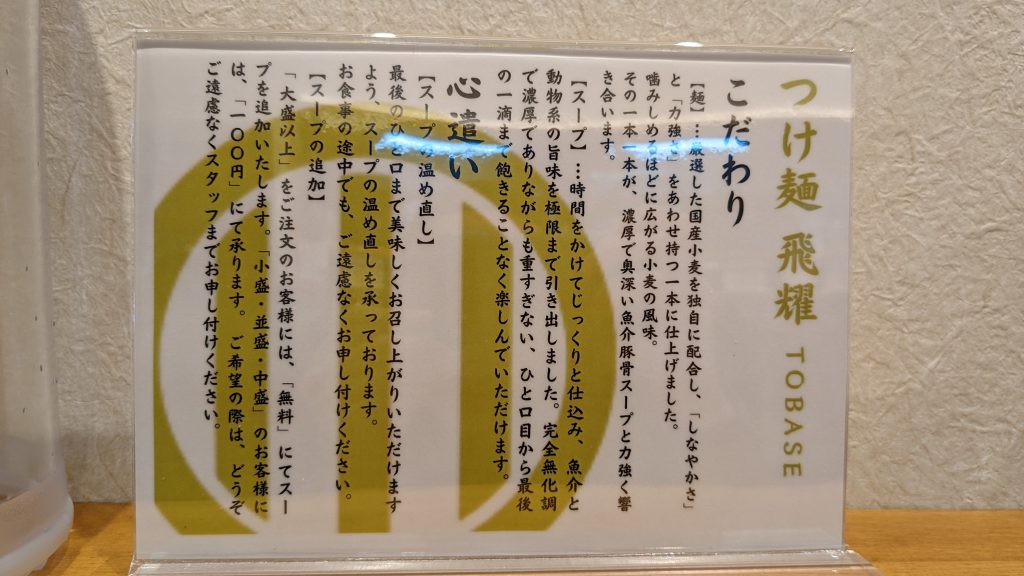 つけ麺 飛燿 TOBASE
こだわり
【麺】…厳選した国産小麦を独自に配合し、「しなやかさ」
と「力強さ」をあわせ持つ一本に仕上げました。
噛みしめるほどに広がる小麦の風味。
その一本一本が、濃厚で奥深い魚介豚骨スープと力強く響
き合います。
【スープ】…時間をかけてじっくりと仕込み、魚介と
動物系の旨味を極限まで引き出しました。完全無化調
で濃厚でありながらも重すぎない、ひと口目から最後
の一滴まで飽きることなく楽しんでいただけます。
心遣い
【スープの温め直し】
最後のひと口まで美味しくお召し上がりいただけます
よう、スープの温め直しを承っております。
お食事の途中でも、ご遠慮なくお申し付けください。
【スープの追加】
「大盛以上」をご注文のお客様には、「無料」にてスー
プを追加いたします。「小盛・並盛・中盛」のお客様に
は、「一〇〇円」にて承ります。ご希望の際は、どうぞ
ご遠慮なくスタッフまでお申し付けください。